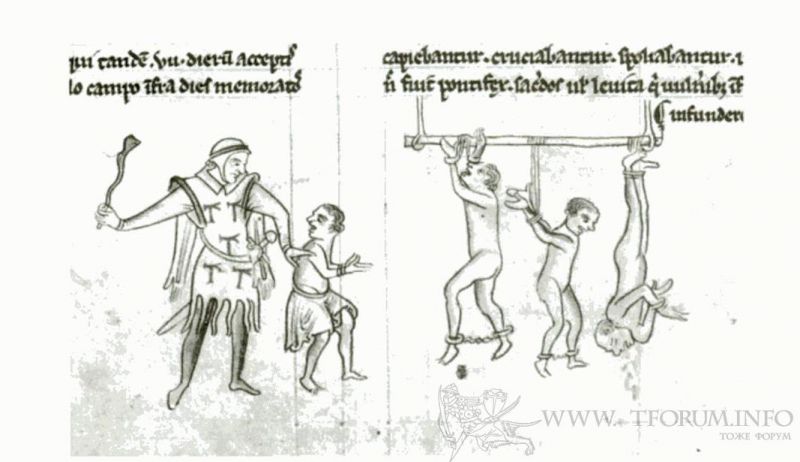 tandē. vii. dierū accepti᾽
lo campo īfra dies memorat᾽
capiebantur. cruciabantur. spoliabantur.
pontifex. sac̄dos ul᾽ leuita
infunder
WWW. TFORUM.INFO
ТОЖЕ ФОРУМ